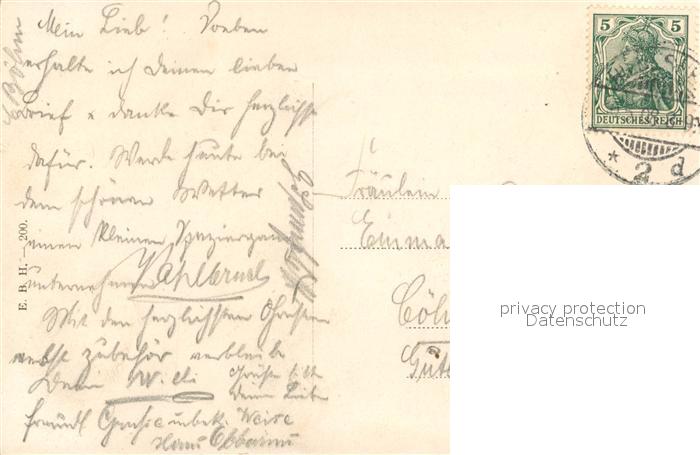 Mein Lieb! Soeben
erhalte ich Deinen lieben
Brief & danke Dir herzlichst
dafür. Werde heute bei
dem schönen Wetter
einen kleinen Spaziergang
unternehmen
Mit den herzlichsten Grüßen
nebst Zubehör verbleibe
Dein Willi
Grüße bitte
Deine Liebe
freundl. Grüsse unbek. Weise
Hans
E. Böhm
E. B. H. — 200.
5 5
DEUTSCHES REICH
* 2 d
Fräulein
Emma
Cöln
privacy protection
Datenschutz